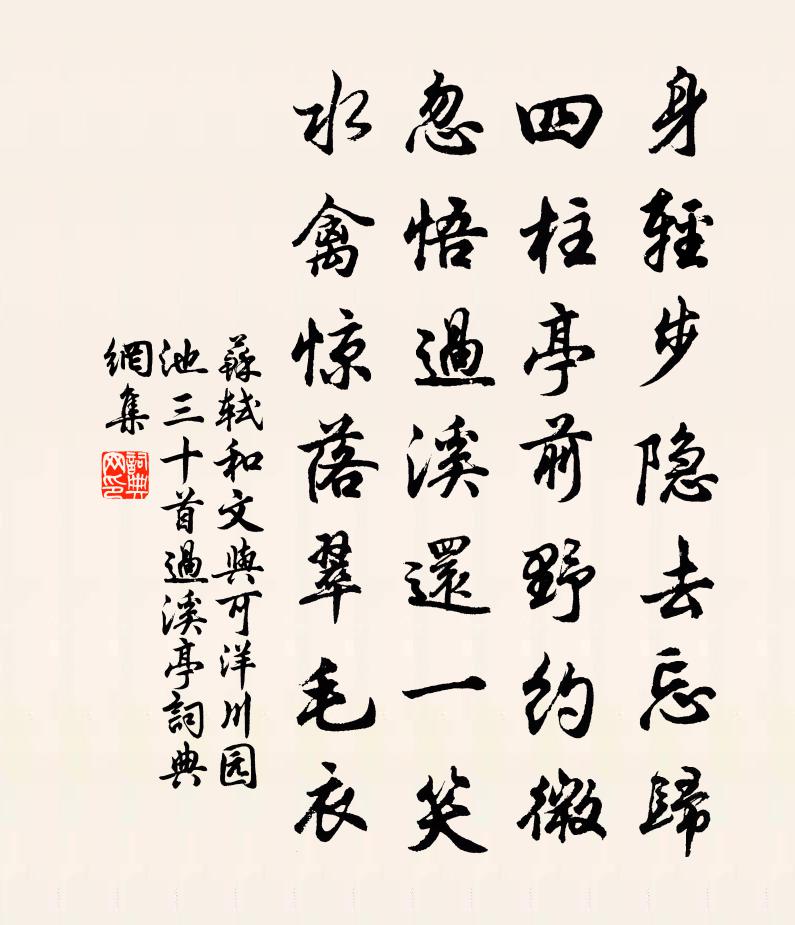 身輕步隐去忘歸
四柱亭前野約微
忽悟過溪還一笑
水禽惊落翠毛衣
蘇轼和文與可洋川园
池三十首過溪亭詞典
網集
詞典网印